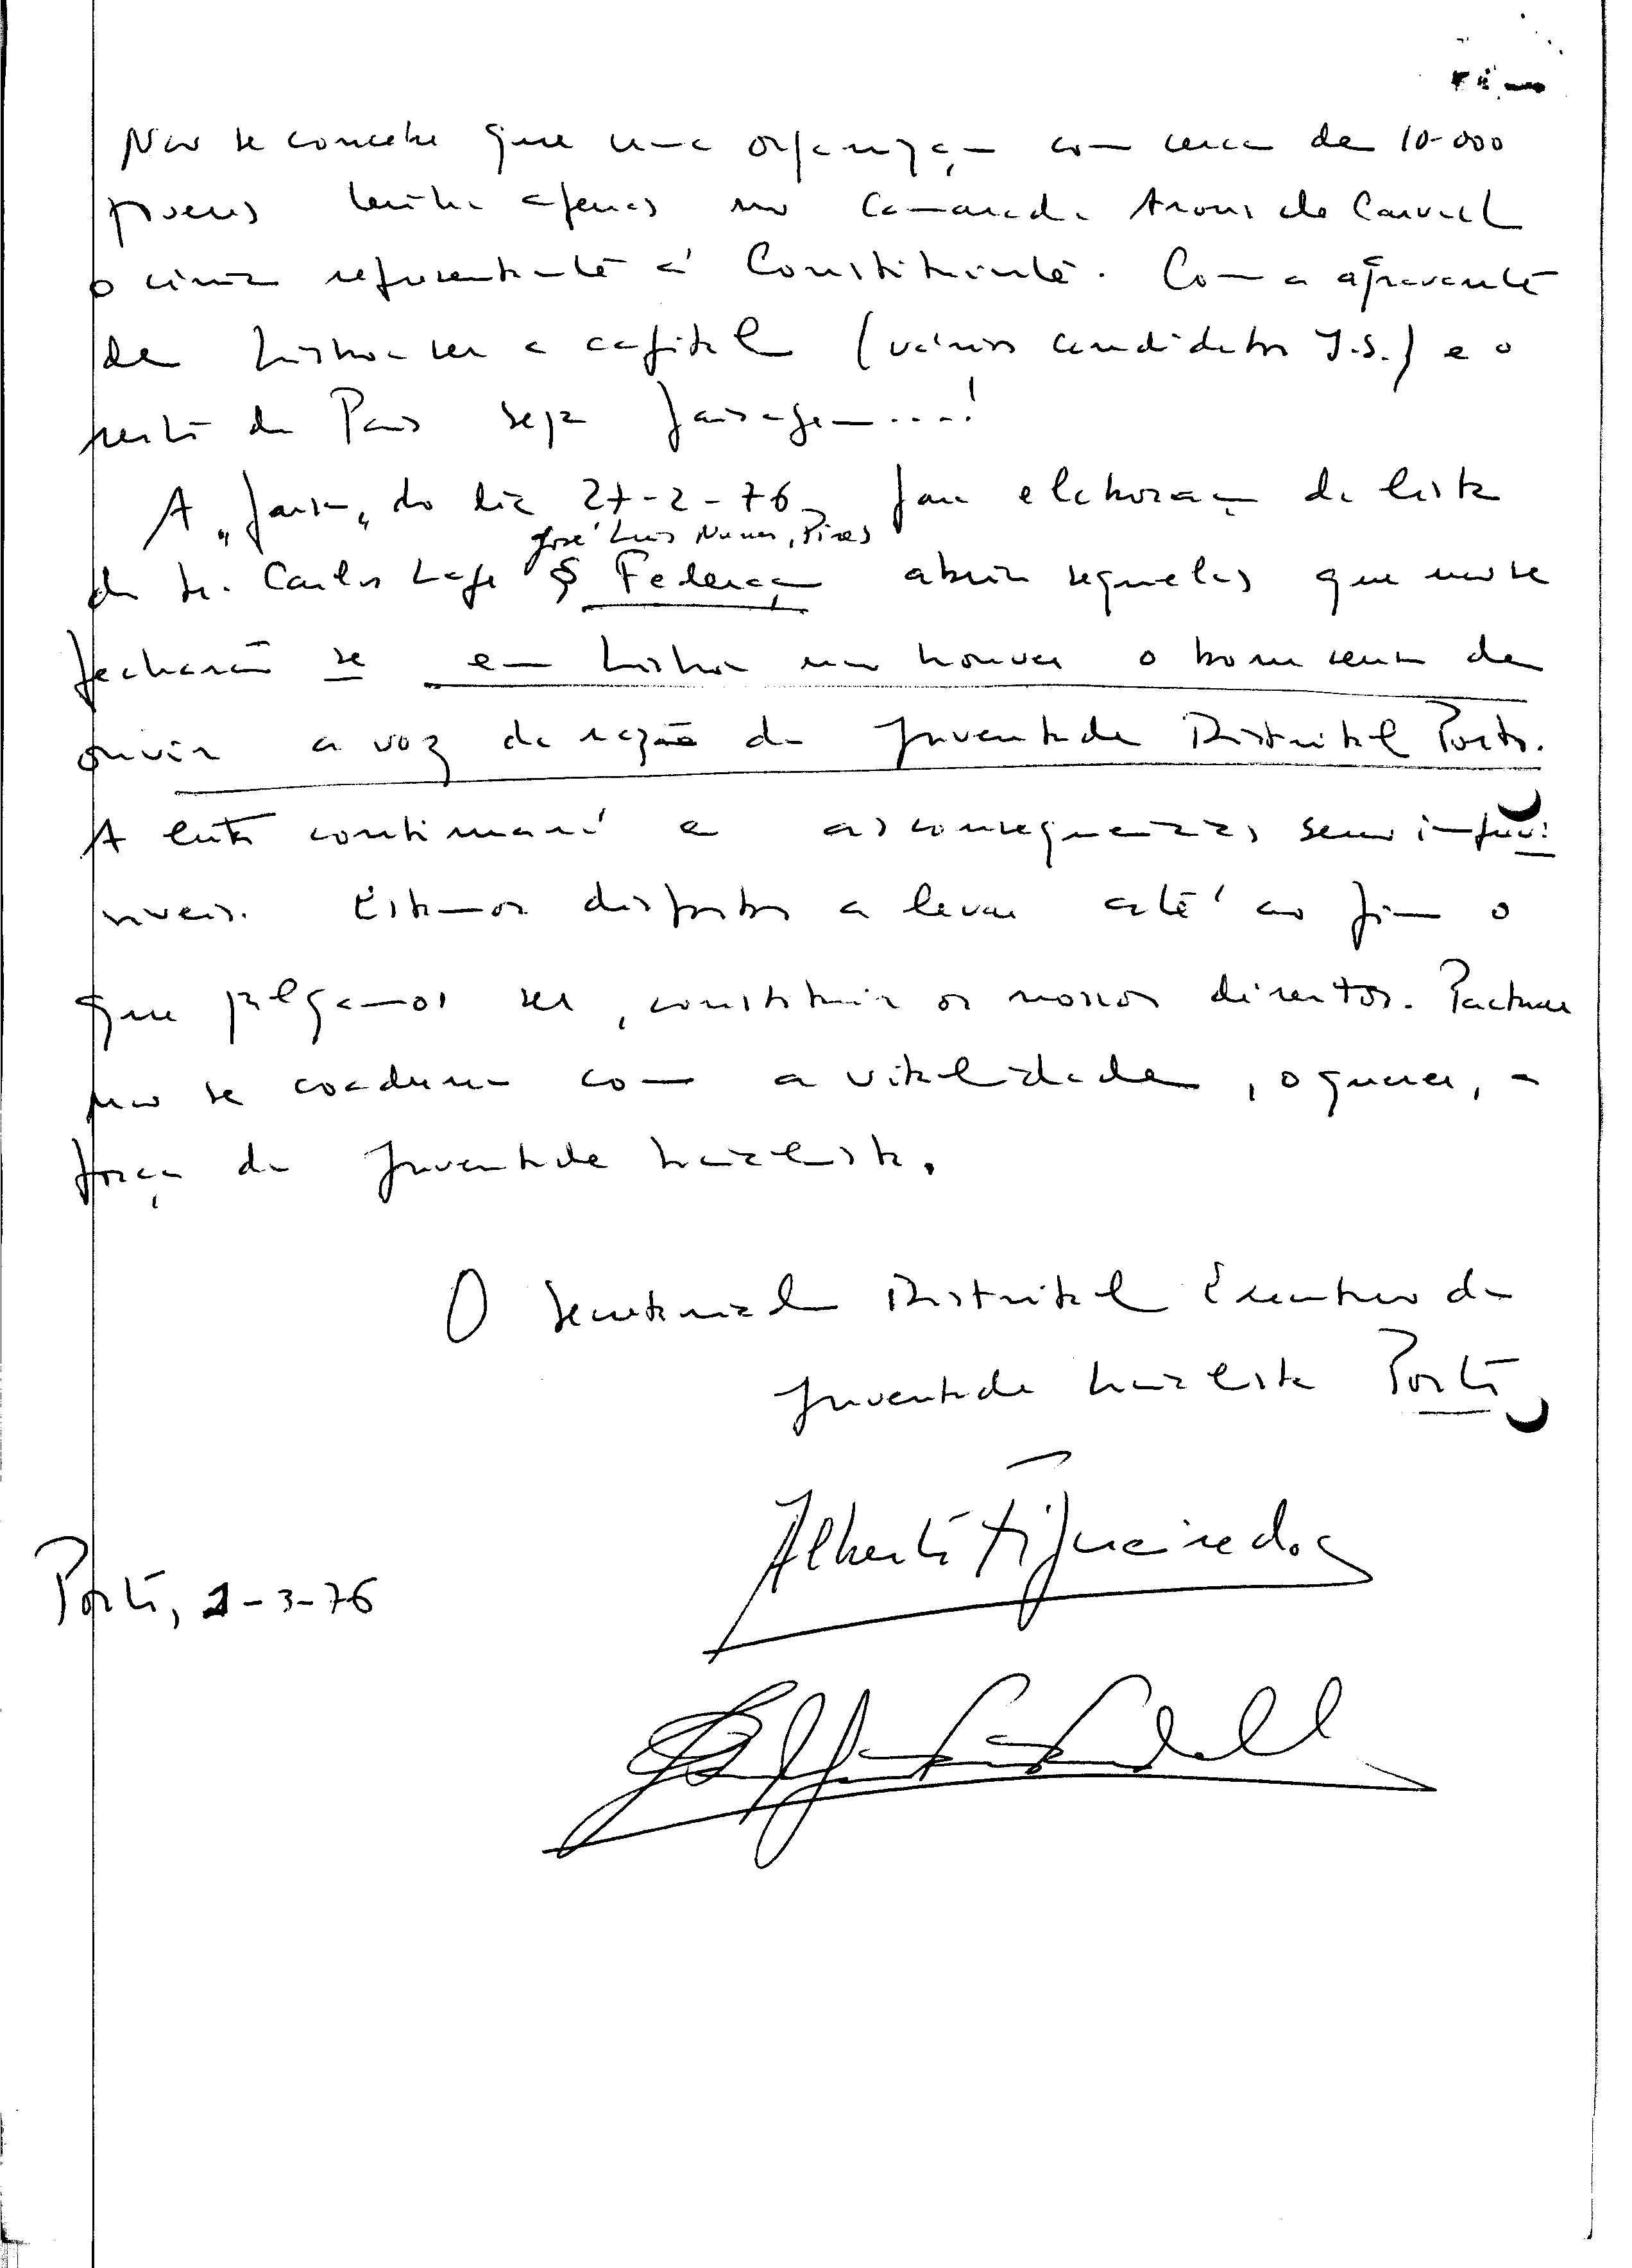 Não se concebe que uma organização com cerca de 10.000
jovens tenha apenas no Camarada Arons de Carvalho
o único representante à Constituinte. Com a agravante
de Lisboa ser a capital (vários candidatos J.S.) e o
resto do País seja paisagem....!
A "farsa" do dia 27-2-76 para elaboração da lista
José Luis Nunes, Pires
do Sr. Carlos Lage § Federação abriu sequelas que não se
fecharão se em Lisboa não houver o bom senso de
ouvir a voz da razão da Juventude Distrital Porto.
A luta continuará e as consequências serão imprevi
síveis. Estamos dispostos a levar até ao fim o
que julgamos ser, constituir os nossos direitos. Pactuar
não se coaduna com a vitalidade, o querer, a
força da Juventude Socialista.
O Secretariado Distrital Executivo da
Juventude Socialista Porto
Alberto Figueiredo
Porto, 1-3-76